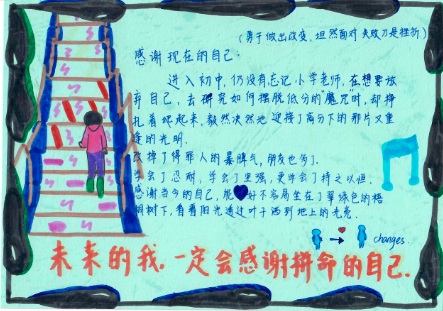 (勇于做出改变,坦然面对失败乃是挫折)
感谢现在的自己:
进入初中,仍没有忘记小学老师,在想要放
弃自己,去研究如何摆脱低分的"魔咒"时,却挣
扎着爬起来,毅然决然地迎接了高分下的那片又重
度的光明.
改掉了得罪人的暴脾气,朋友也多了.
学会了忍耐,学会了坚强,更学会了持之以恒.
感谢当今的自己,能好不容易坐在了翠绿色的梧
桐树下,看着阳光透过叶子洒到地上的光亮.
changes
未来的我.一定会感谢拼命的自己.